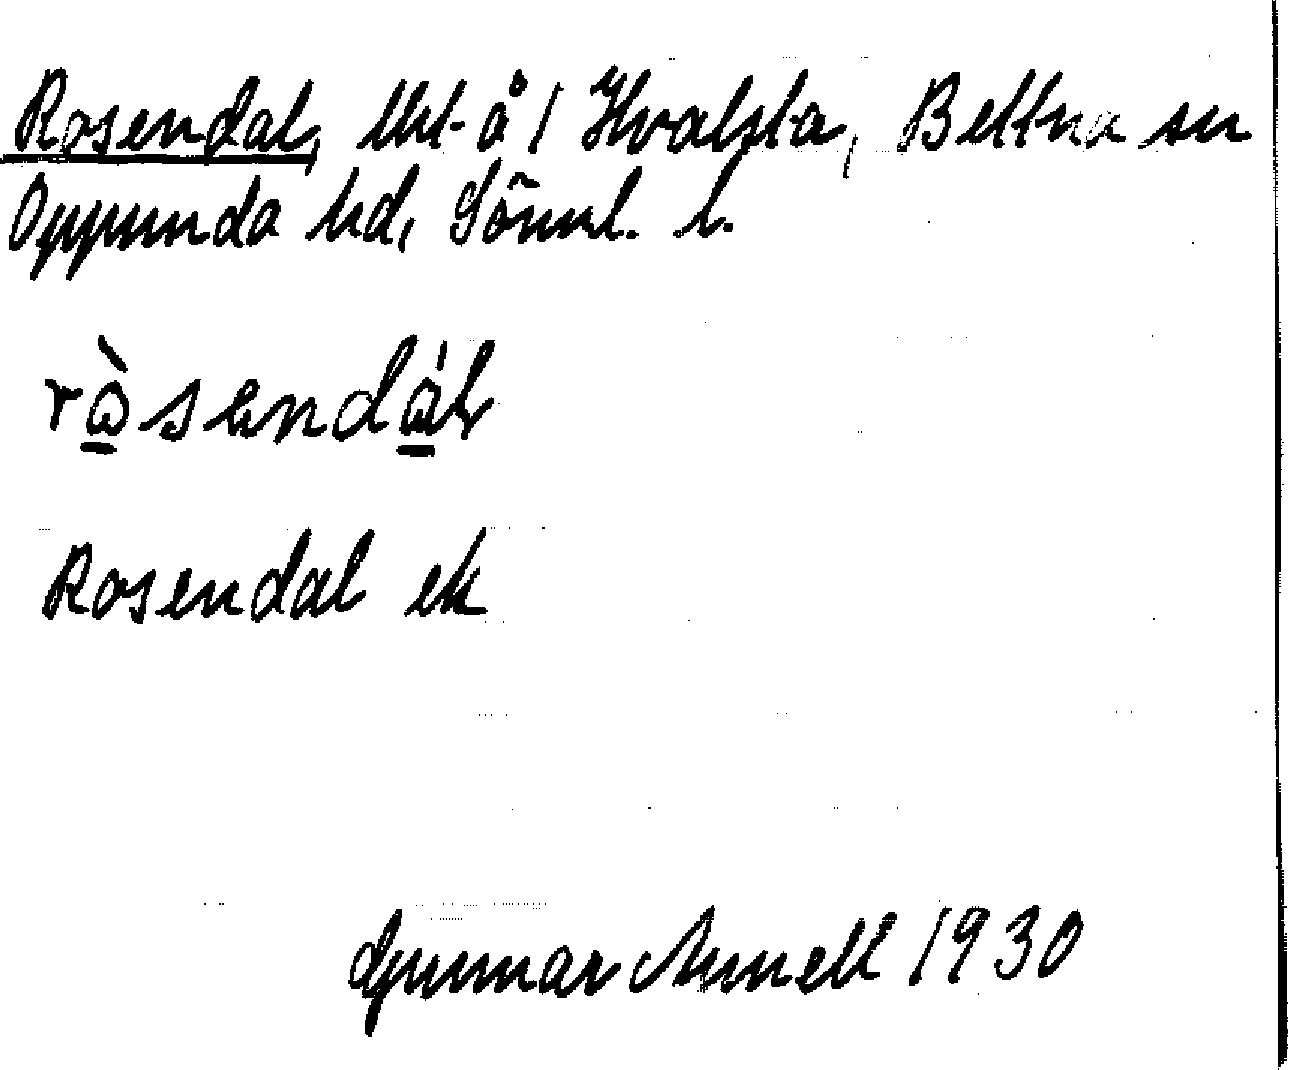 Rosendal, lht å 1 Hvalsta, Bettna sn
Oppunda hd, Sörml. l.
rò̲sendá̲l
Rosendal ek
Gunnar Annell 1930